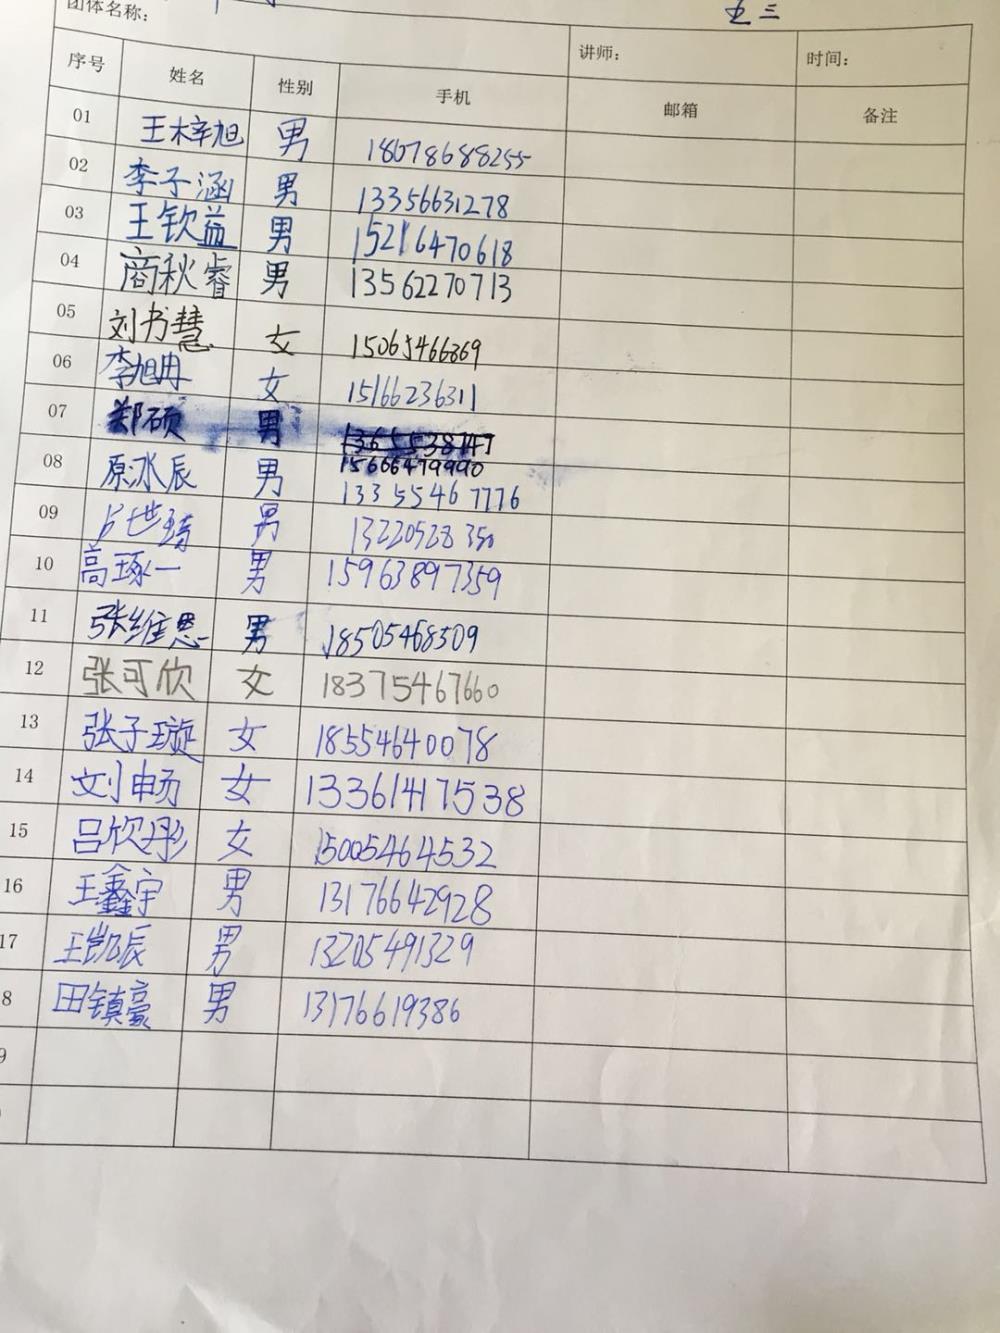 团体名称:
五三
讲师: 时间:
序号 姓名 性别 手机 邮箱 备注
01 王梓旭 男 18078688255
02 李子涵 男 13356631278
03 王钦益 男 15216470618
04 商秋睿 男 13562270713
05 刘书慧 女 15065466869
06 李旭冉 女 15166236311
07 郑硕 男
15666479990
08 原冰辰 男 13355467776
09 男 13220528350
10 高琢一 男 15963897359
11 张维恩 男 18505468509
12 张可欣 女 18375467660
13 张子璇 女 18554640078
14 刘畅 女 13361417538
15 吕欣彤 女 15005464532
16 王鑫宇 男 13176642928
17 王凯辰 男 13205491329
8 田镇豪 男 13176619386
9